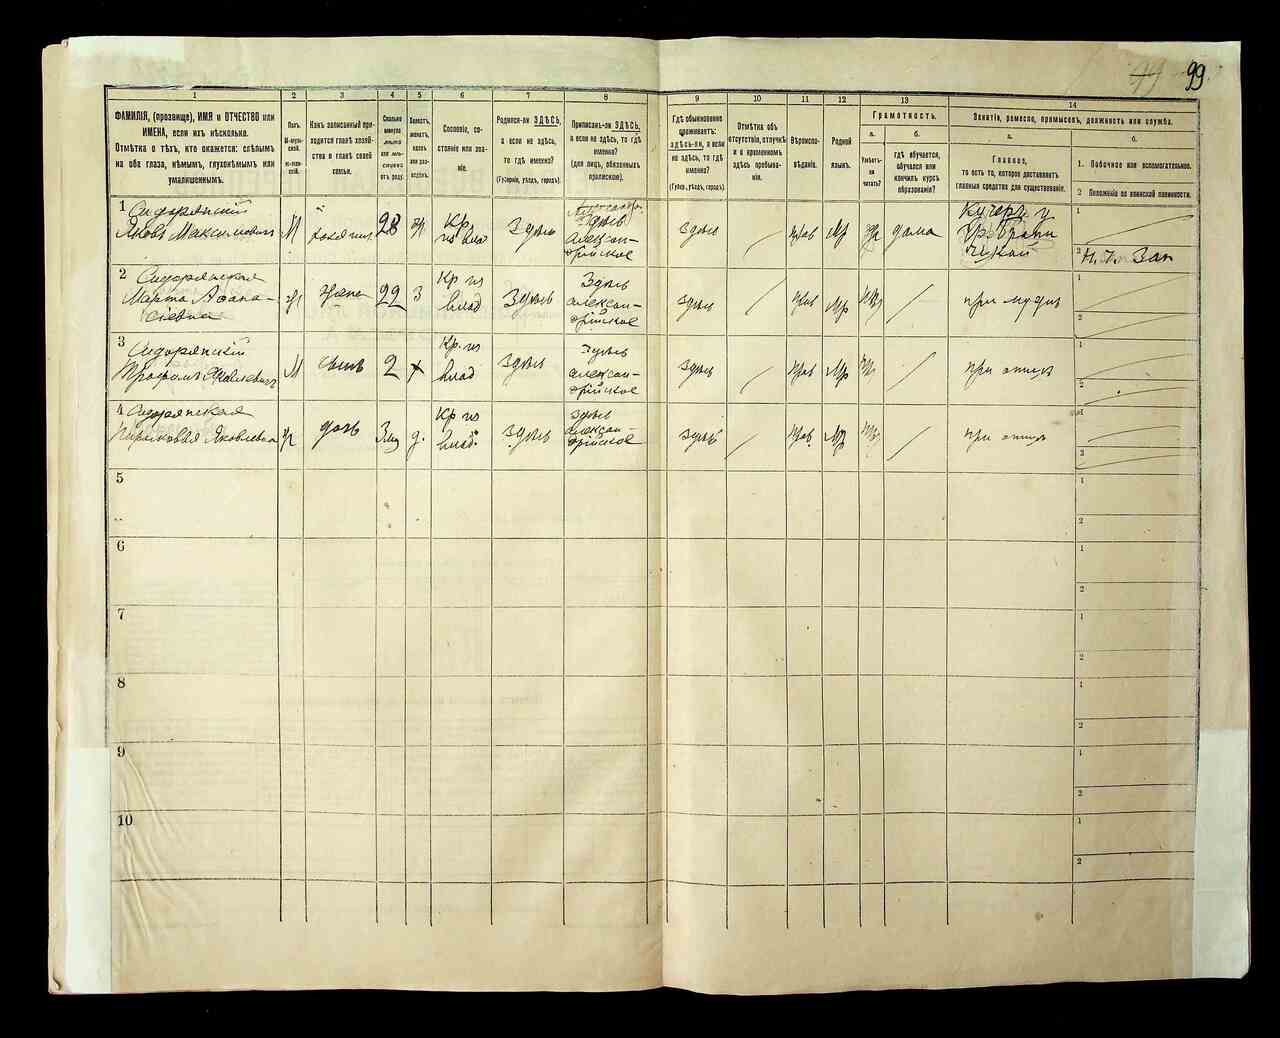 99
99.
1
2
3
4
5
6
7
8
9
10
11
12
13
14
ФАМИЛІЯ, (прозвище), ИМЯ и ОТЧЕСТВО или
ИМЕНА, если ихъ нѣсколько.
Отмѣтка о тѣхъ, кто окажется: слѣпымъ
на оба глаза, нѣмымъ, глухонѣмымъ или
умалишеннымъ.
Полъ.
М-муж-
ской.
Ж-жен-
скій.
Какъ записанный при-
ходится главѣ хозяй-
ства и главѣ своей
семьи.
Сколько
минуло
лѣтъ
или мѣ-
сяцевъ
отъ роду.
Холостъ,
женатъ,
вдовъ
или раз-
веденъ.
Сословіе, со-
стояніе или зва-
ніе.
Родился-ли ЗДѢСЬ,
а если не здѣсь,
то гдѣ именно?
(Губернія, уѣздъ, городъ).
Приписанъ-ли ЗДѢСЬ,
а если не здѣсь, то гдѣ
именно?
(для лицъ, обязанныхъ
припискою).
Гдѣ обыкновенно
проживаетъ:
здѣсь-ли, а если
не здѣсь, то гдѣ
именно?
(Губер., уѣздъ, городъ).
Отмѣтка объ
отсутствіи, отлучкѣ
и о временномъ
здѣсь пребыва-
ніи.
Вѣроиспо-
вѣданіе.
Родной
языкъ.
Грамотность.
а.
Умѣетъ-
ли
читать?
б.
гдѣ обучается,
обучался или
кончилъ курсъ
образованія?
Занятіе, ремесло, промыселъ, должность или служба.
а.
Главное,
то есть то, которое доставляетъ
главныя средства для существованія.
б.
1. Побочное или вспомогательное.
2 Положеніе по воинской повинности.
1 Сидорянскій
Яковъ Максимовичъ М хозяинъ 28 ж Кр. из влад Здѣсь Здѣсь
алексан-
дрійское
здѣсь прав Мр дома Кучеръ у
1
2
2 Сидорянская
Марта Афана-
сіевна ж жена 22 з Кр из
влад Здѣсь Здѣсь
алексан-
дрійское
здѣсь прав Мр при мужѣ
1
2
3 Сидорянскій
Трофимъ Яковлевичъ М сынъ 2 х Кр. из
влад Здѣсь Здѣсь
алексан-
дрійское
здѣсь прав Мр при отцѣ
1
2
4 Сидорянская
Яковлевна дочь д. Кр из
влад. Здѣсь здѣсь
алексан-
дрійское
здѣсь прав Мр при отцѣ
1
2
5
1
2
6
1
2
7
1
2
8
1
2
9
1
2
10
1
2